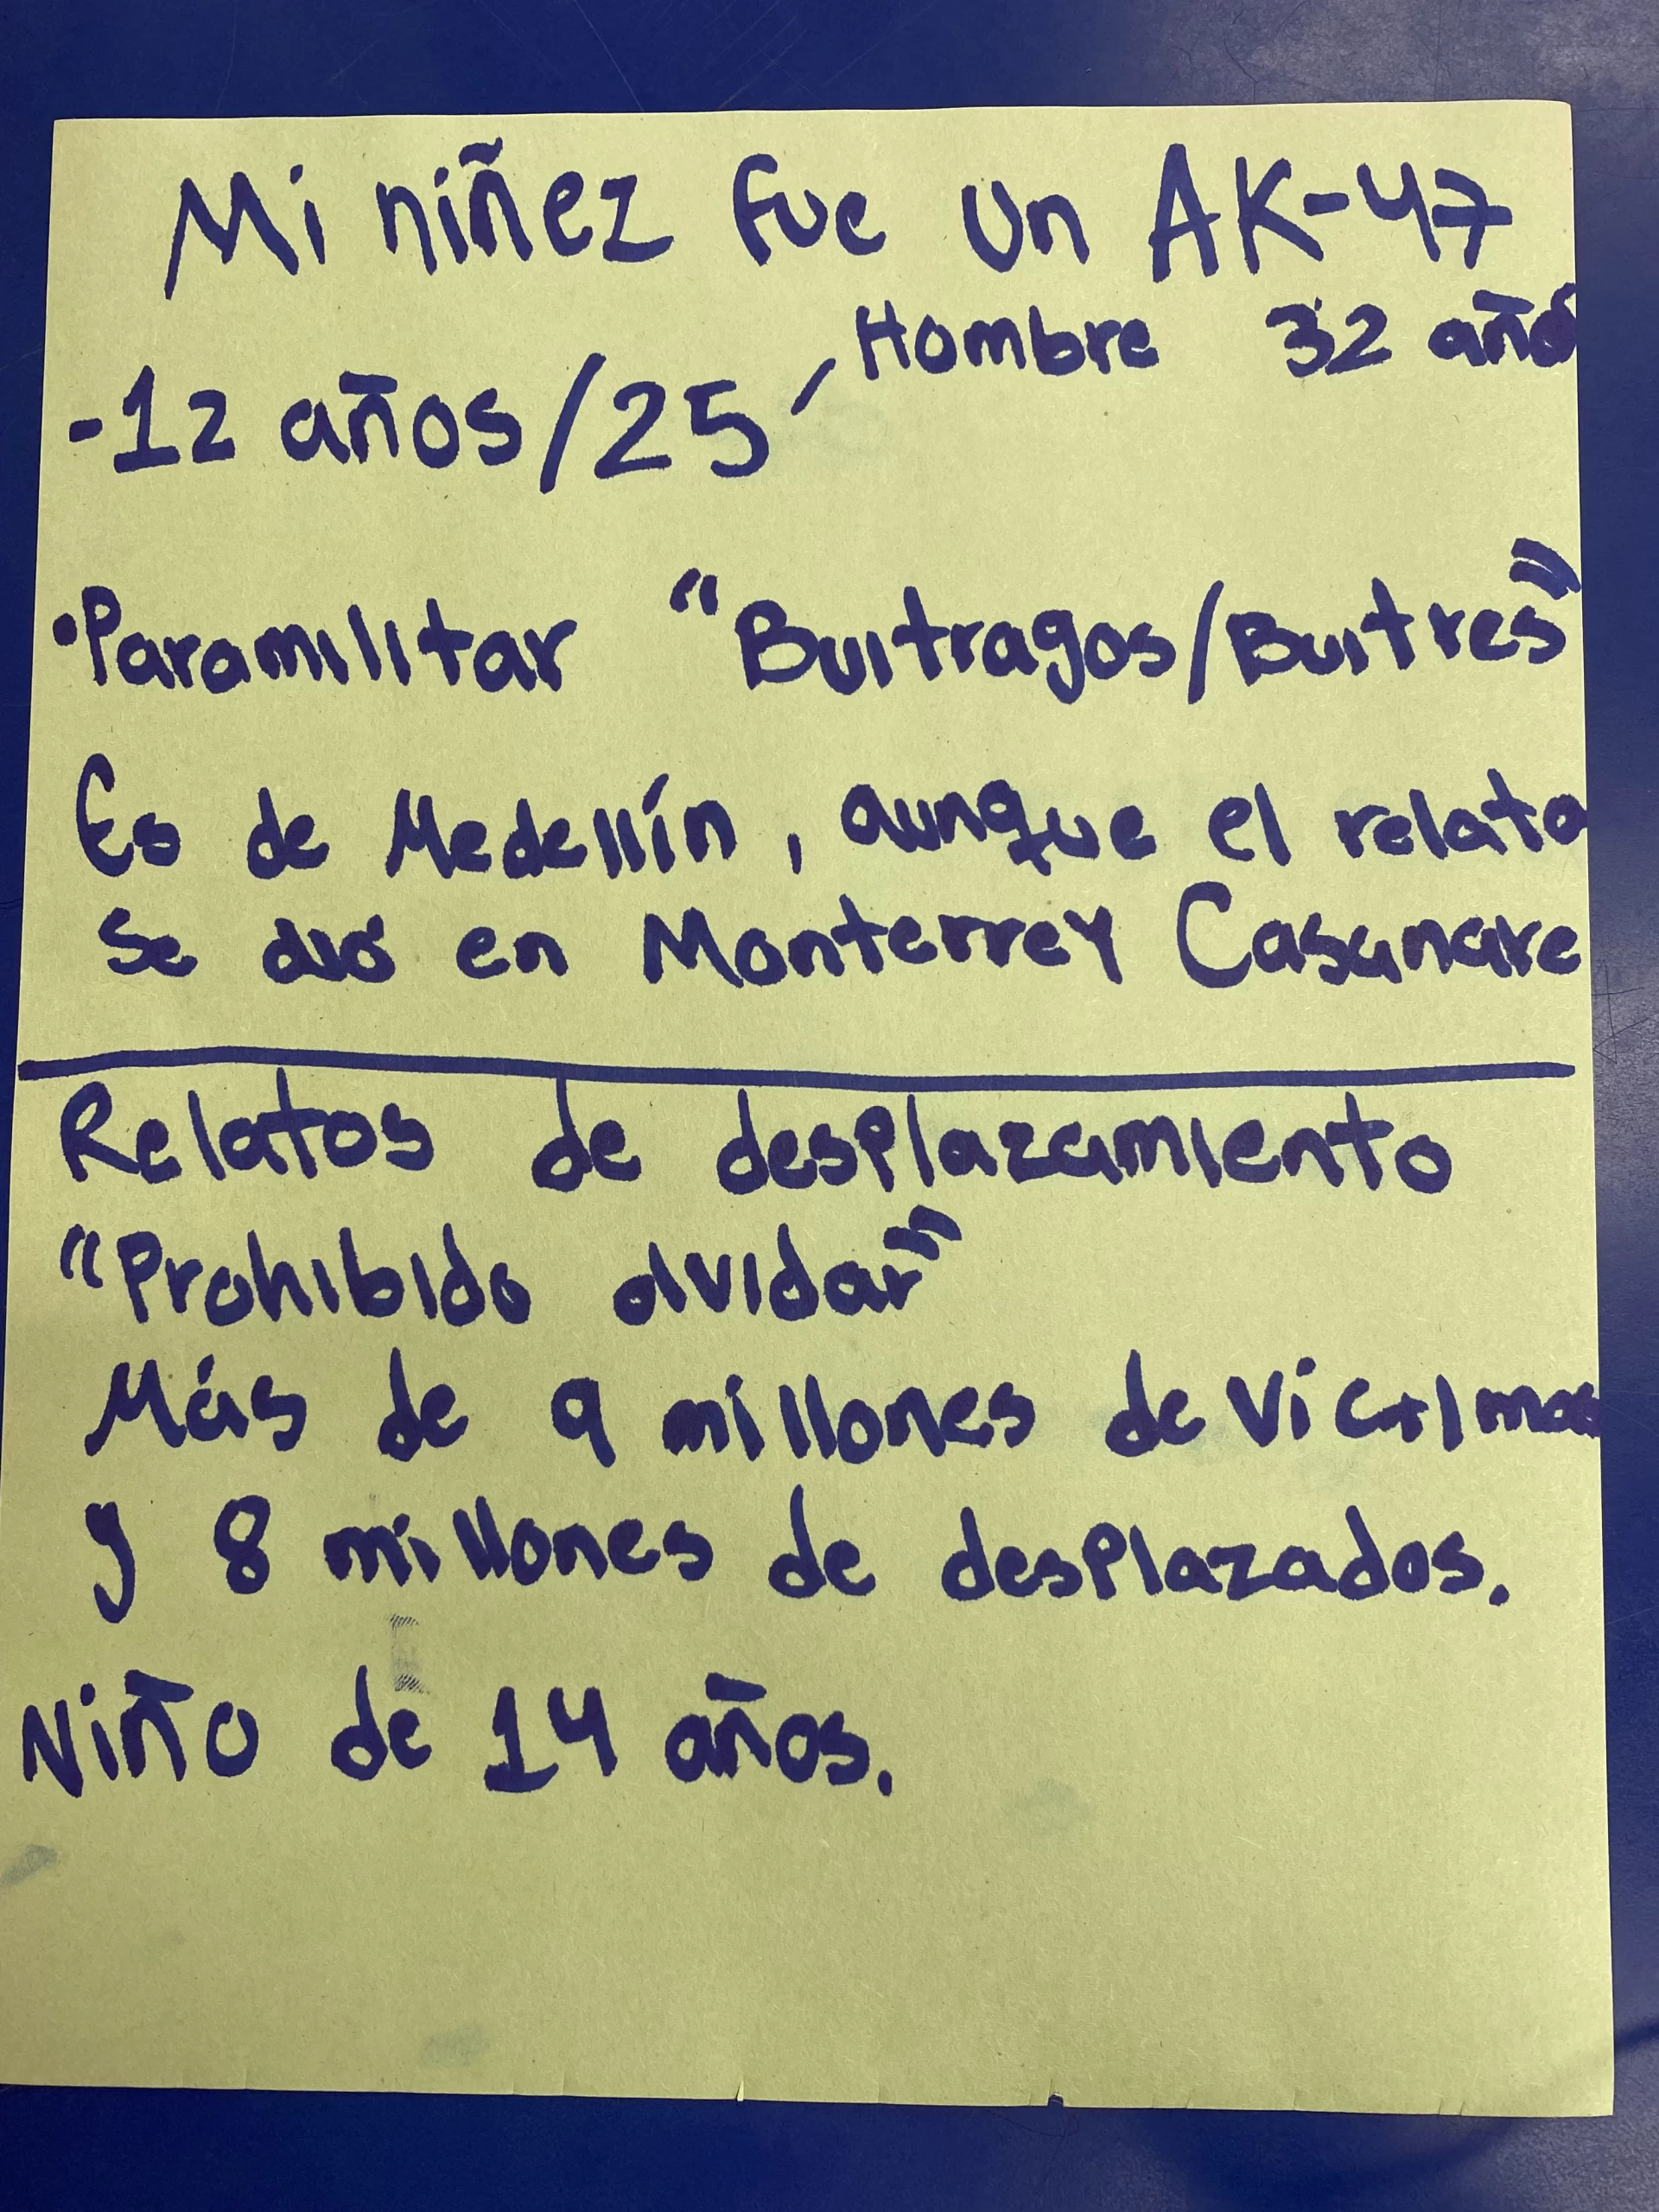 Mi niñez fue un AK-47
Hombre 32 años
-12 años/25
•Paramilitar "Buitragos/Buitres"
Es de Medellín, aunque el relato
se dió en Monterrey Casanare
Relatos de desplazamiento
"Prohibido olvidar"
Más de 9 millones de victimas
y 8 millones de desplazados.
Niño de 14 años.